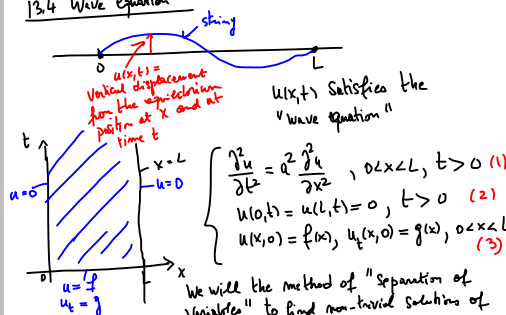 13.4 Wave equation
string
0
L
u(x,t) =
vertical displacement
from the equilibrium
position at x and at
time t
u(x,t) satisfies the
"wave equation"
t
u=0
x=L
u=0
0
L
x
u=f
u_t = g
∂²u/∂t² = a² ∂²u/∂x² , 0<x<L, t>0 (1)
u(0,t) = u(L,t) = 0 , t>0 (2)
u(x,0) = f(x), u_t(x,0) = g(x), 0<x<L
(3)
We will the method of "separation of
variables" to find non-trivial solutions of